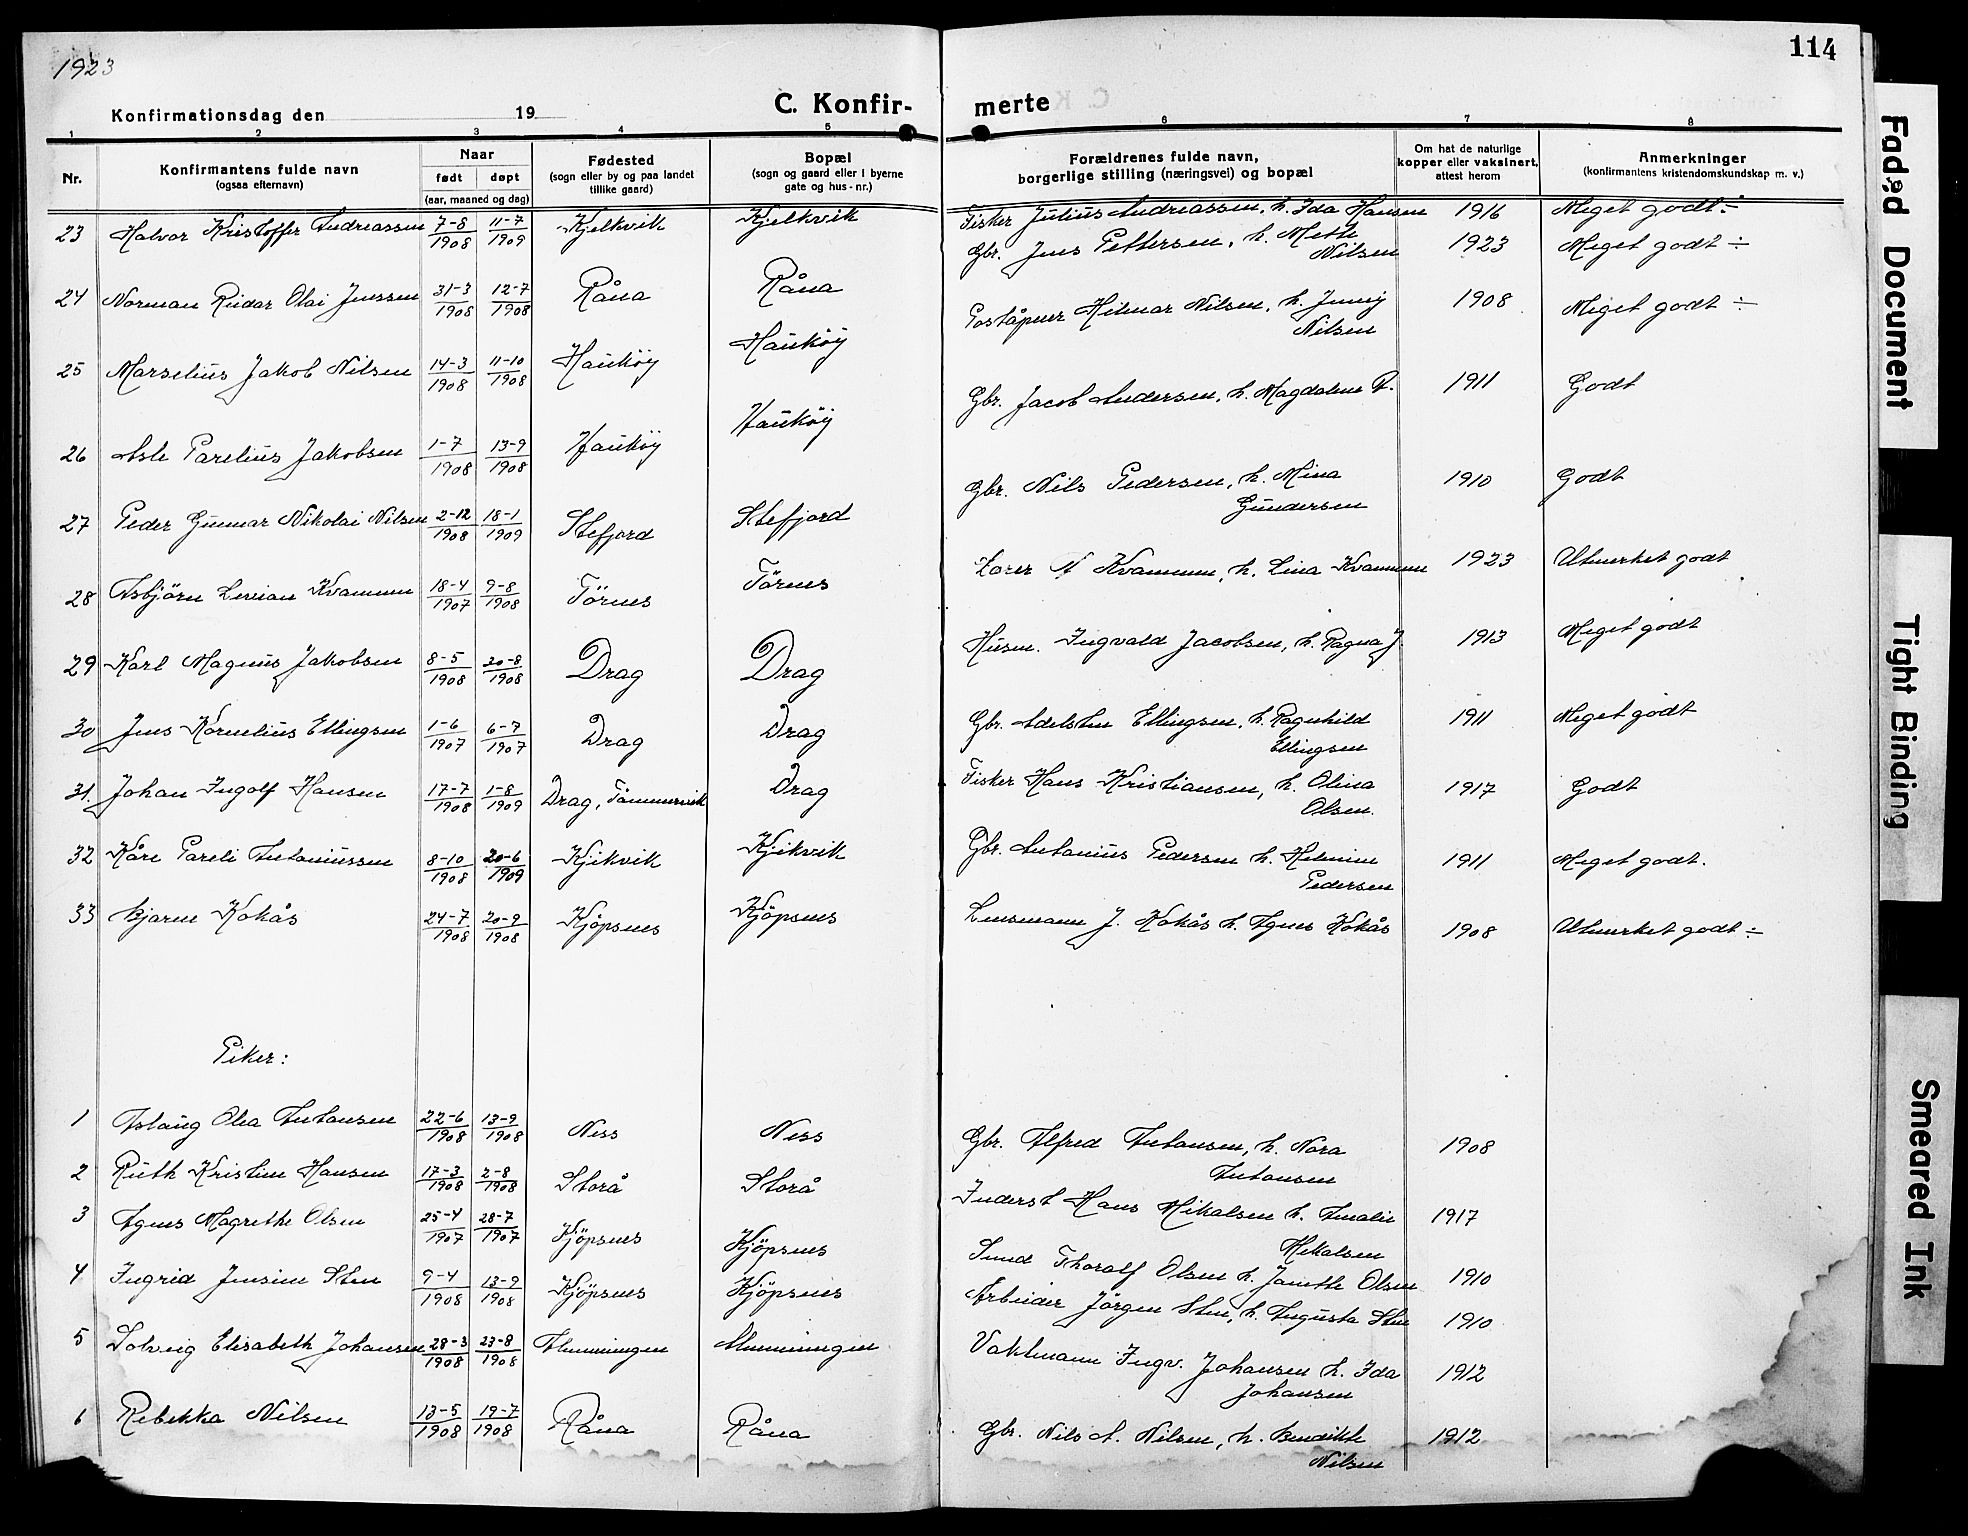 1923
114
Konfirmationsdag den 19
C. Konfir-
merte
1 2 3 4 5 6 7 8
Nr.
Konfirmantens fulde navn
(ogsaa efternavn)
Naar
født døpt
(aar, maaned og dag)
Fødested
(sogn eller by og paa landet
tillike gaard)
Bopæl
(sogn og gaard eller i byerne
gate og hus-nr.)
Forældrenes fulde navn,
borgerlige stilling (næringsvei) og bopæl
Om hat de naturlige
kopper eller vaksinert,
attest herom
Anmerkninger
(konfirmantens kristendomskundskap m. v.)
23 Halvor Kristoffer Andreassen 7-8/1908 11-7/1909 Kjelkvik Kjelkvik Fisker Julius Andreassen, h. Ida Hansen 1916 Meget godt ÷
24 Norman Reidar Olai Jenssen 31-3/1908 12-7/1908 Råna Råna Gbr. Jens Pettersen, h. Mette
Nilsen 1923 Meget godt ÷
25 Marselius Jakob Nilsen 14-3/1908 11-10/1908 Hauköy Hauköy Poståpner Hilmar Nilsen, h. Jenny
Nilsen 1908 Meget godt ÷
26 Asle Parelius Jakobsen 1-7/1908 13-9/1908 Hauköy Hauköy Gbr. Jacob Andersen, h. Magdalene P. 1911 Godt
27 Peder Gunnar Nikolai Nilsen 2-12/1908 18-1/1909 Stefjord Stefjord Gbr. Nils Pedersen, h. Mina
Gundersen 1910 Godt
28 Asbjörn Levian Kvammen 18-4/1907 9-8/1908 Törnes Törnes Lærer A Kvammen, h. Lina Kvammen 1923 Utmerket godt
29 Karl Magnus Jakobsen 8-5/1908 20-8/1908 Drag Drag Husm. Ingvald Jacobsen, h. Ragna J. 1913 Meget godt
30 Jens Kornelius Ellingsen 1-6/1907 6-7/1907 Drag Drag Gbr. Adelsten Ellingsen, h. Ragnhild
Ellingsen 1911 Meget godt
31. Johan Ingolf Hansen 17-7/1908 1-8/1909 Drag, Tömmervik Drag Fisker Hans Kristiansen, h. Olina
Olsen. 1917 Godt
32 Kåre Pareli Antoniussen 8-10/1908 20-6/1909 Kjikvik Kjikvik Gbr. Antonius Pedersen h. Helmine
Pedersen 1911 Meget godt.
33 Bjarne Kokås 24-7/1908 20-9/1908 Kjöpsnes Kjöpsnes Lensmann J. Kokås h. Agnes Kokås 1908 Utmerket godt ÷
Piker:
1 Aslaug Olea Antonsen 22-6/1908 13-9/1908 Ness Ness Gbr. Alfred Antonsen, h. Nora
Antonsen 1908
2 Ruth Kristine Hansen 17-3/1908 2-8/1908 Storå Storå Inderst Hans Mikalsen h. Amalie
Mikalsen 1917
3 Agnes Magrethe Olsen 25-4/1907 28-7/1907 Kjöpsnes Kjöpsnes Smed Thoralf Olsen h. Janette Olsen 1910
4 Ingrid Jensine Sten 9-4/1908 13-9/1908 Kjöpsnes Kjöpsnes Arbeider Jörgen Sten, h. Augusta Sten 1910
5 Solveig Elisabeth Johansen 28-3/1908 23-8/1908 Almenningen Almenningen Vaktmann Ingv. Johansen h. Ida
Johansen 1912
6 Rebekka Nilsen 13-5/1908 19-7/1908 Råna Råna Gbr. Nils A. Nilsen, h. Bendikte
Nilsen 1912
Faded Document
Tight Binding
Smeared Ink